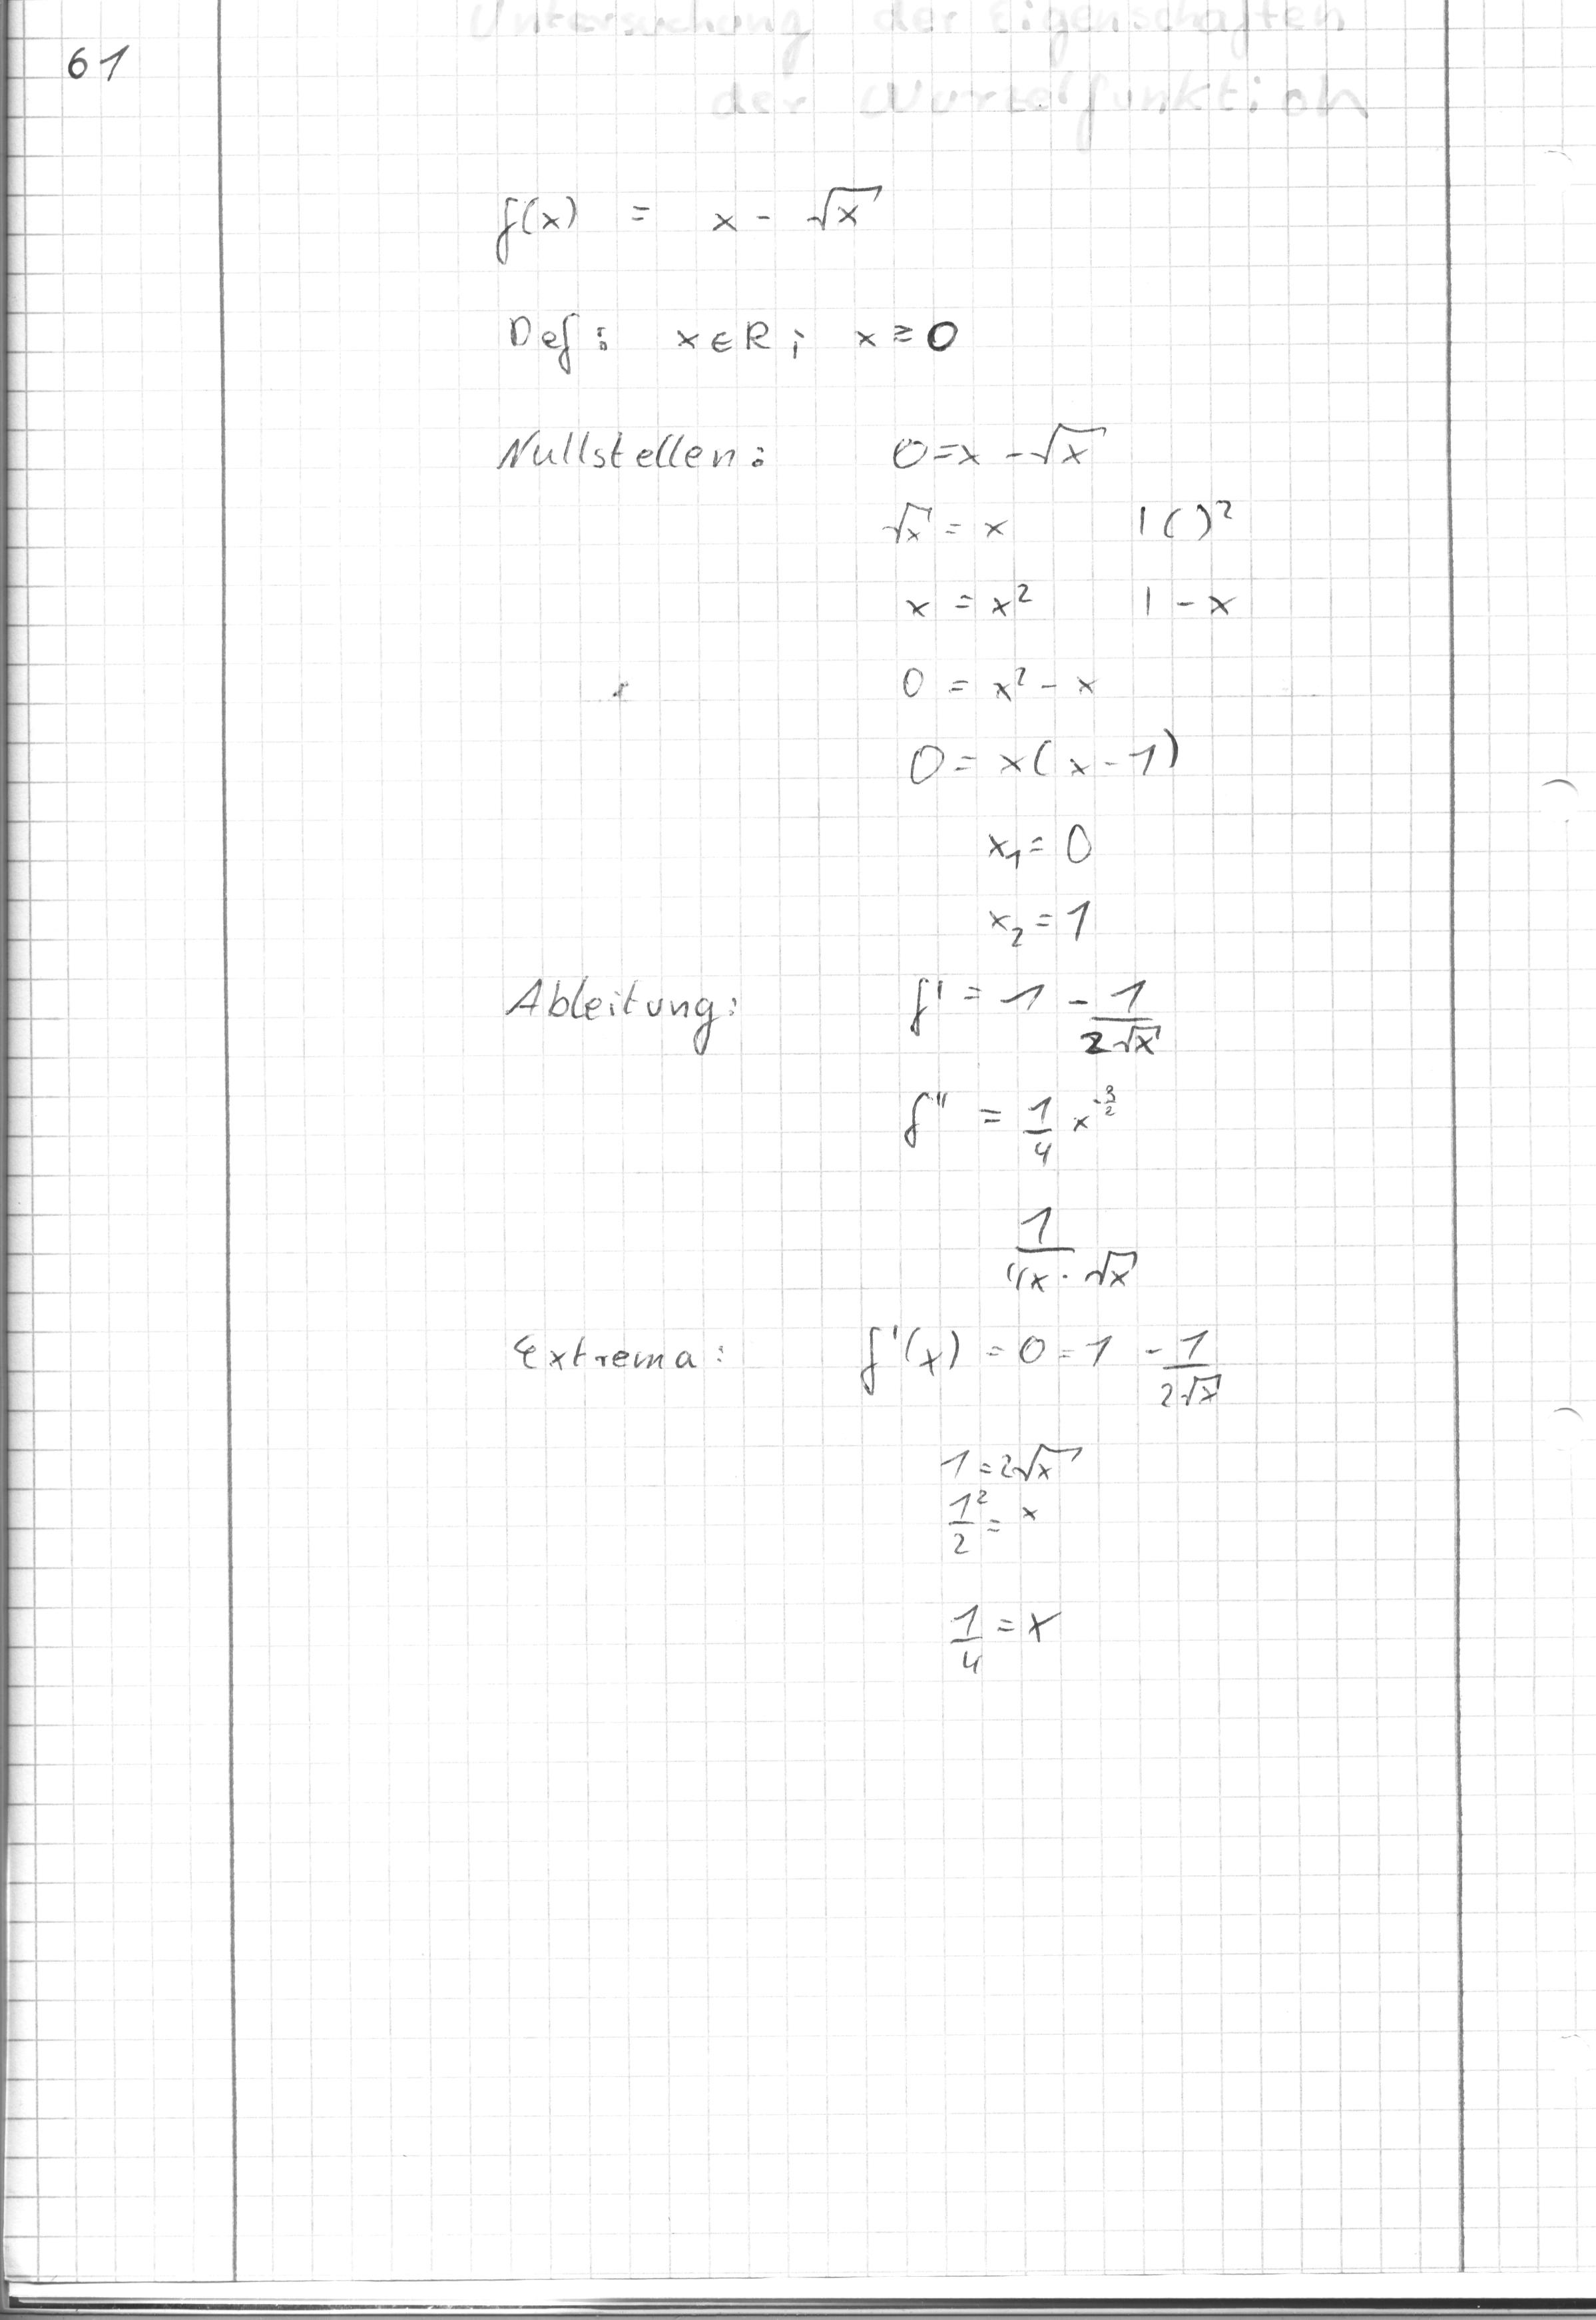 Untersuchung der Eigenschaften
61
der Wurzelfunktion
f(x) = x - √x
Def: x ∈ R ; x ≥ 0
Nullstellen: 0 = x - √x
√x = x | ( )²
x = x² | - x
0 = x² - x
0 = x(x - 1)
x₁ = 0
x₂ = 1
Ableitung: f' = 1 - 1/(2√x)
f'' = 1/4 x^(-3/2)
1/(4x · √x)
Extrema: f'(x) = 0 = 1 - 1/(2√x)
1 = 2√x
1²/2 = x
1/4 = x